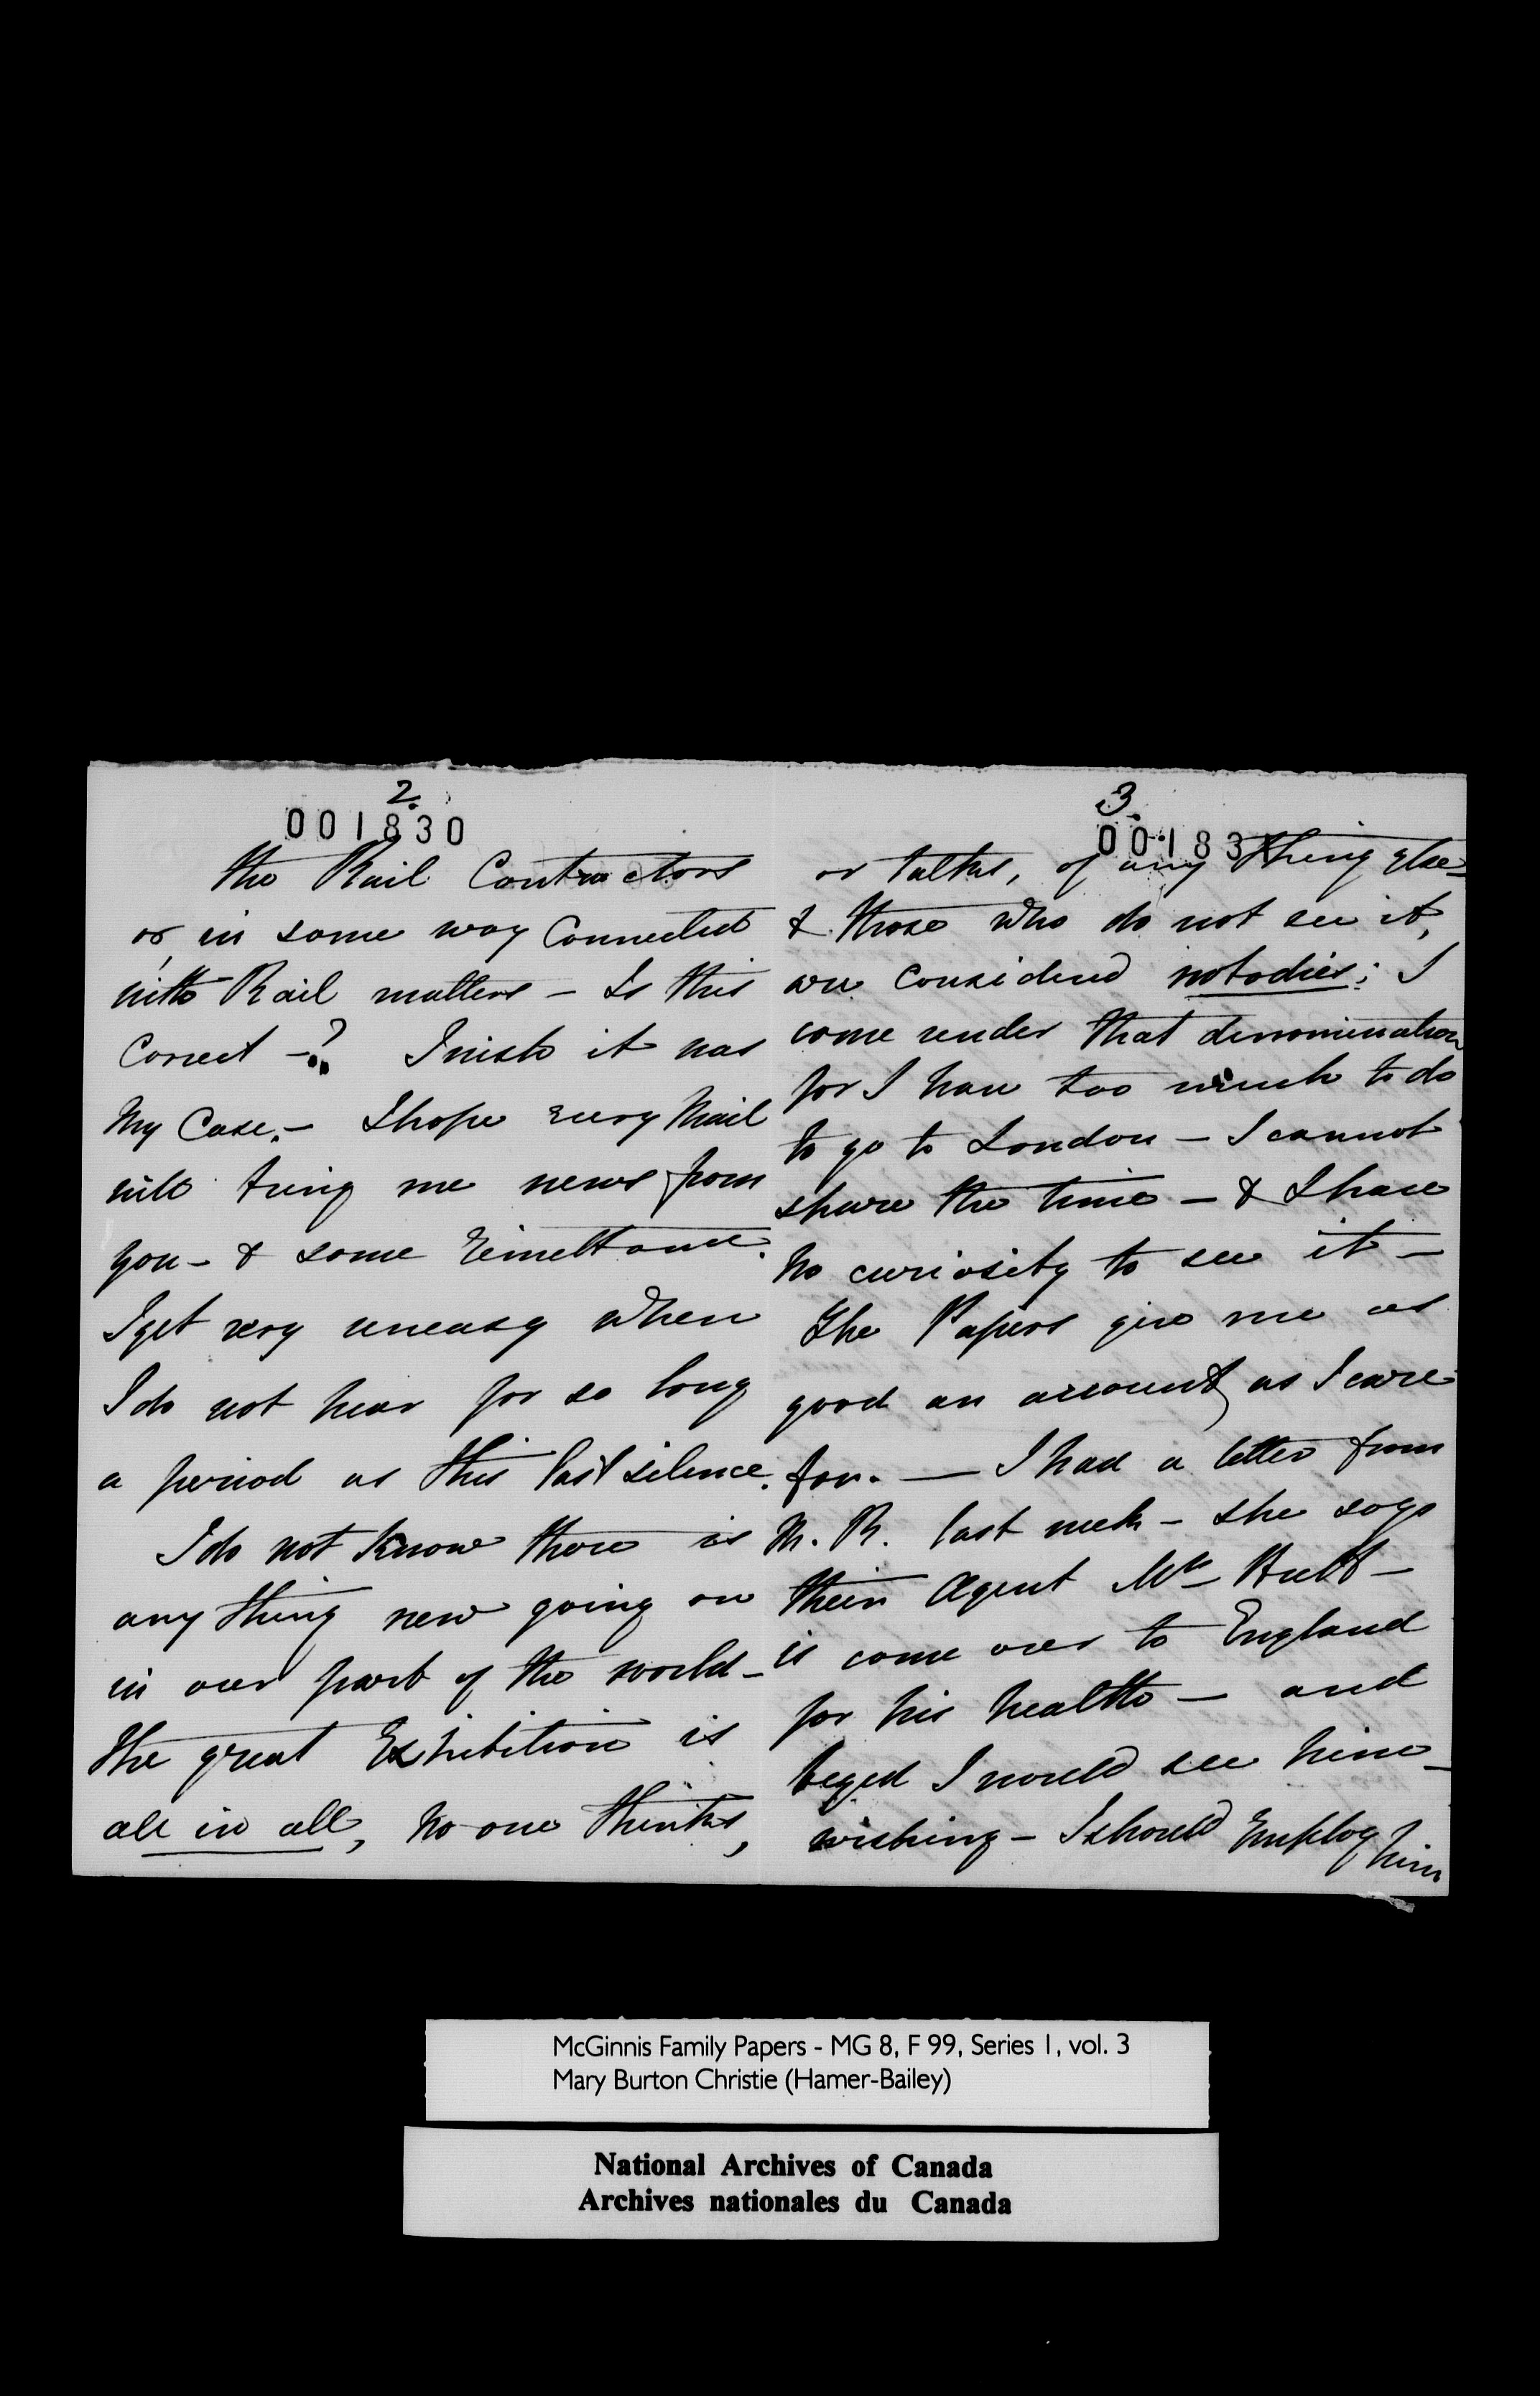 2.
001830
the Rail Contractors
or in some way Connected
with Rail matters - Is this
Correct -? I wish it was
My Case. - I hope every Mail
will bring me news from
you - & some remittance.
I get very uneasy when
I do not hear for so long
a period as this last silence.
I do not know there is
any thing new going on
in our part of the world -
the great Exhibition is
all in all, no one thinks,
3.
00183
or talks, of any thing else -
& those who do not see it,
are Considered nobodies; I
come under that denomination
for I have too much to do
to go to London - I cannot
spare the time - & I have
no curiosity to see it -
The Papers give me as
good an account as I care
for. - I had a letter from
M. R. last week - she says
their Agent Mr
is come over to England
for his health - and
beged I would see him -
wishing - I should Employ him
McGinnis Family Papers - MG 8, F 99, Series 1, vol. 3
Mary Burton Christie (Hamer-Bailey)
National Archives of Canada
Archives nationales du Canada